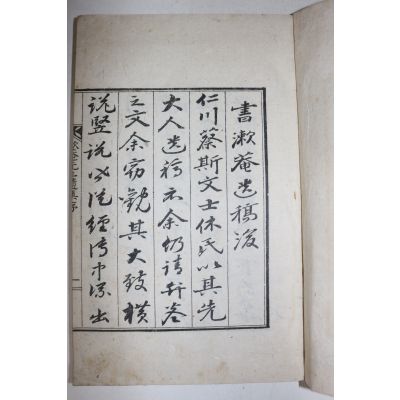 書漱菴遺稿後
仁川蔡斯文士休氏以其先
大人遺稿示余仍請弁卷
之文余窃觀其大致橫
說竪說 從經傳中流出